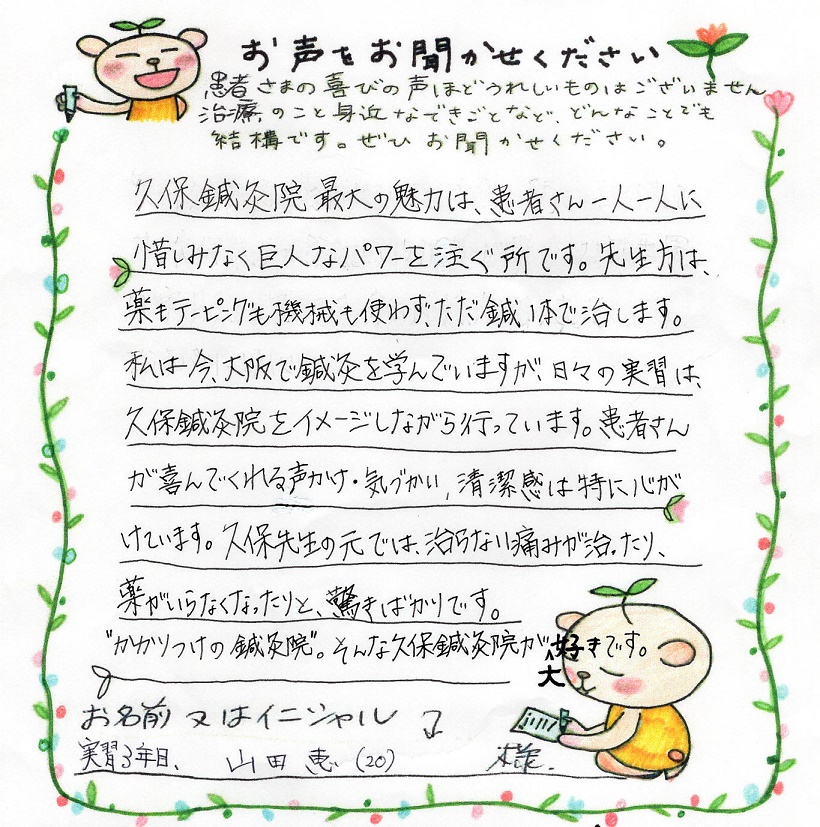 お声をお聞かせください
患者さまの喜びの声ほどうれしいものはございません
治療のこと身近なできごとなど、どんなことでも
結構です。ぜひお聞かせください。
久保鍼灸院最大の魅力は、患者さん一人一人に
惜しみなく巨人なパワーを注ぐ所です。先生方は、
薬もテーピングも機械も使わず、ただ鍼1本で治します。
私は今、大阪で鍼灸を学んでいますが、日々の実習は、
久保鍼灸院をイメージしながら行っています。患者さん
が喜んでくれる声かけ・気づかい、清潔感は特に心が
けています。久保先生の元では、治らない痛みが治ったり、
薬がいらなくなったりと、驚きばかりです。
"かかりつけの鍼灸院"。そんな久保鍼灸院が大好きです。
お名前又はイニシャル
実習3年目、山田恵(20)様